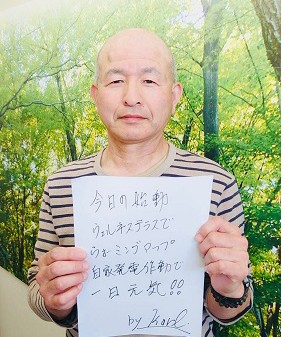 今日の始動
ウェルネステラスで
ウォーミングアップ
自家発電作動で
一日元気!!
by